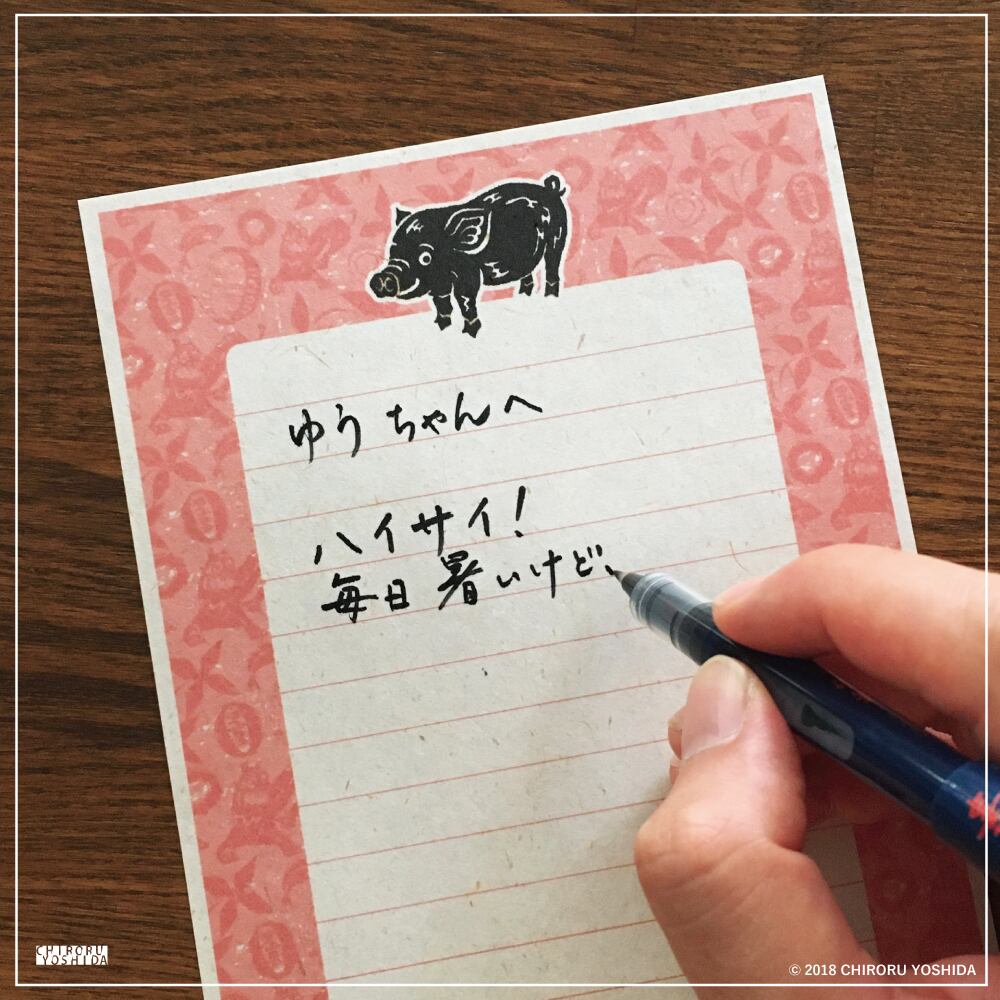 ゆうちゃんへ
ハイサイ!
毎日暑いけど、
CHIRORU
YOSHIDA
© 2018 CHIRORU YOSHIDA